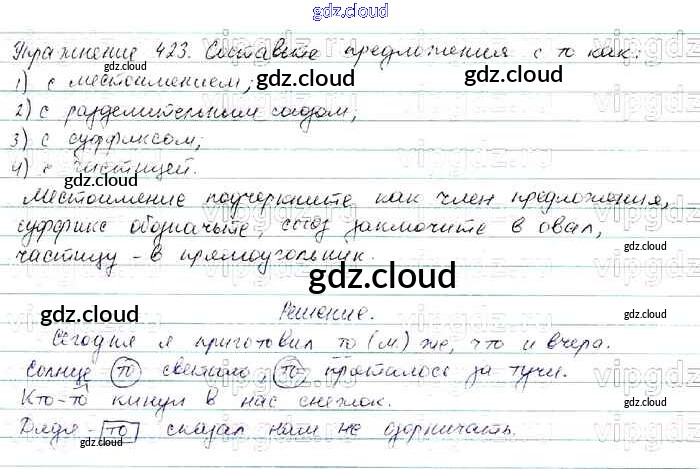 gdz.cloud
Упражнение 423. Составьте предложения с то как:
1) с местоимением;
gdz.cloud
gdz.cloud
2) с разделительным союзом;
gdz.cloud
3) с суффиксом;
4) с частицей.
gdz.cloud
Местоимение подчеркните как член предложения,
суффикс обозначьте, союз заключите в овал,
gdz.cloud
gdz.cloud
частицу - в прямоугольник.
gdz.cloud
Решение.
gdz.cloud
gdz.cloud
Сегодня я приготовил то (м.) же, что и вчера.
Солнце то светило, то пряталось за тучи.
gdz.cloud
Кто-то кинул в нас снежок.
gdz.cloud
gdz.cloud
Дядя-то сказал нам не озорничать.
vipgdz